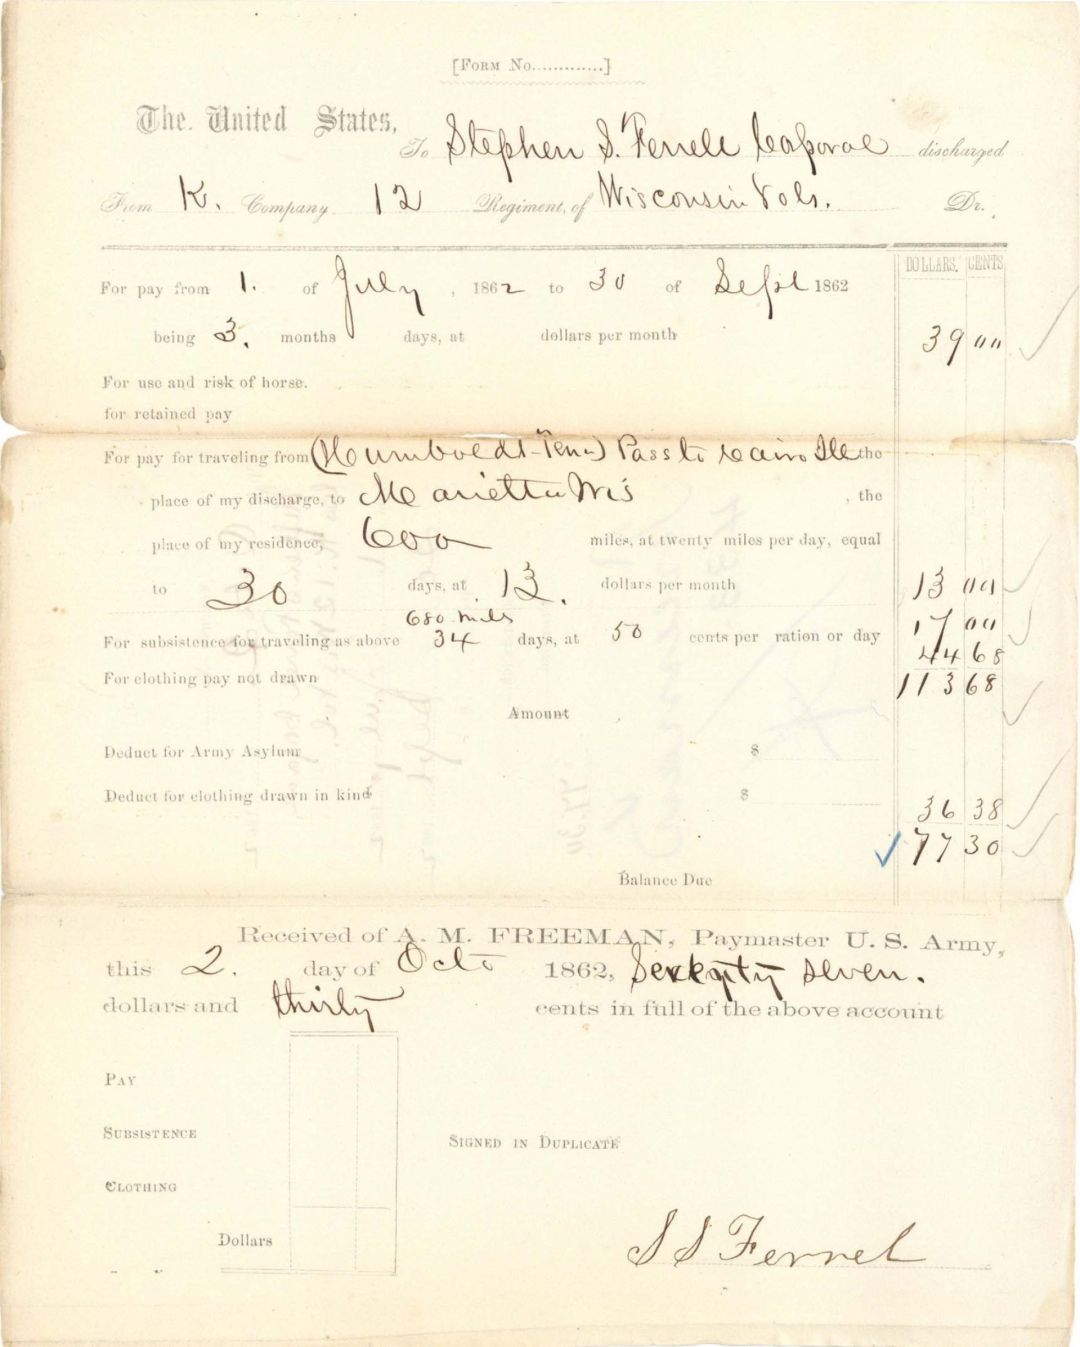 [Form No.............]
The United States,
To Stephen S. Ferrell Corporal discharged
From K. Company 12 Regiment, of Wisconsin Vols. Dr.
DOLLARS. CENTS
For pay from 1. of July, 1862 to 30 of Sept 1862
being 3. months days, at dollars per month 39 00
For use and risk of horse.
for retained pay
For pay for traveling from (Humboldt-Tenn) Pass to Cairo Ill the
place of my discharge, to Marietta Wis, the
place of my residence, 600 miles, at twenty miles per day, equal
to 30 days, at 13. dollars per month 13 00
680 miles
For subsistence for traveling as above 34 days, at 50 cents per ration or day 17 00
44 68
For clothing pay not drawn 113 68
Amount
Deduct for Army Asylum $
Deduct for clothing drawn in kind $ 36 38
77 30
Balance Due
Received of A. M. FREEMAN, Paymaster U. S. Army,
this 2. day of Octo 1862, seven.
dollars and thirty cents in full of the above account
Pay
Subsistence
Signed in Duplicate
Clothing
Dollars
S S Ferrel